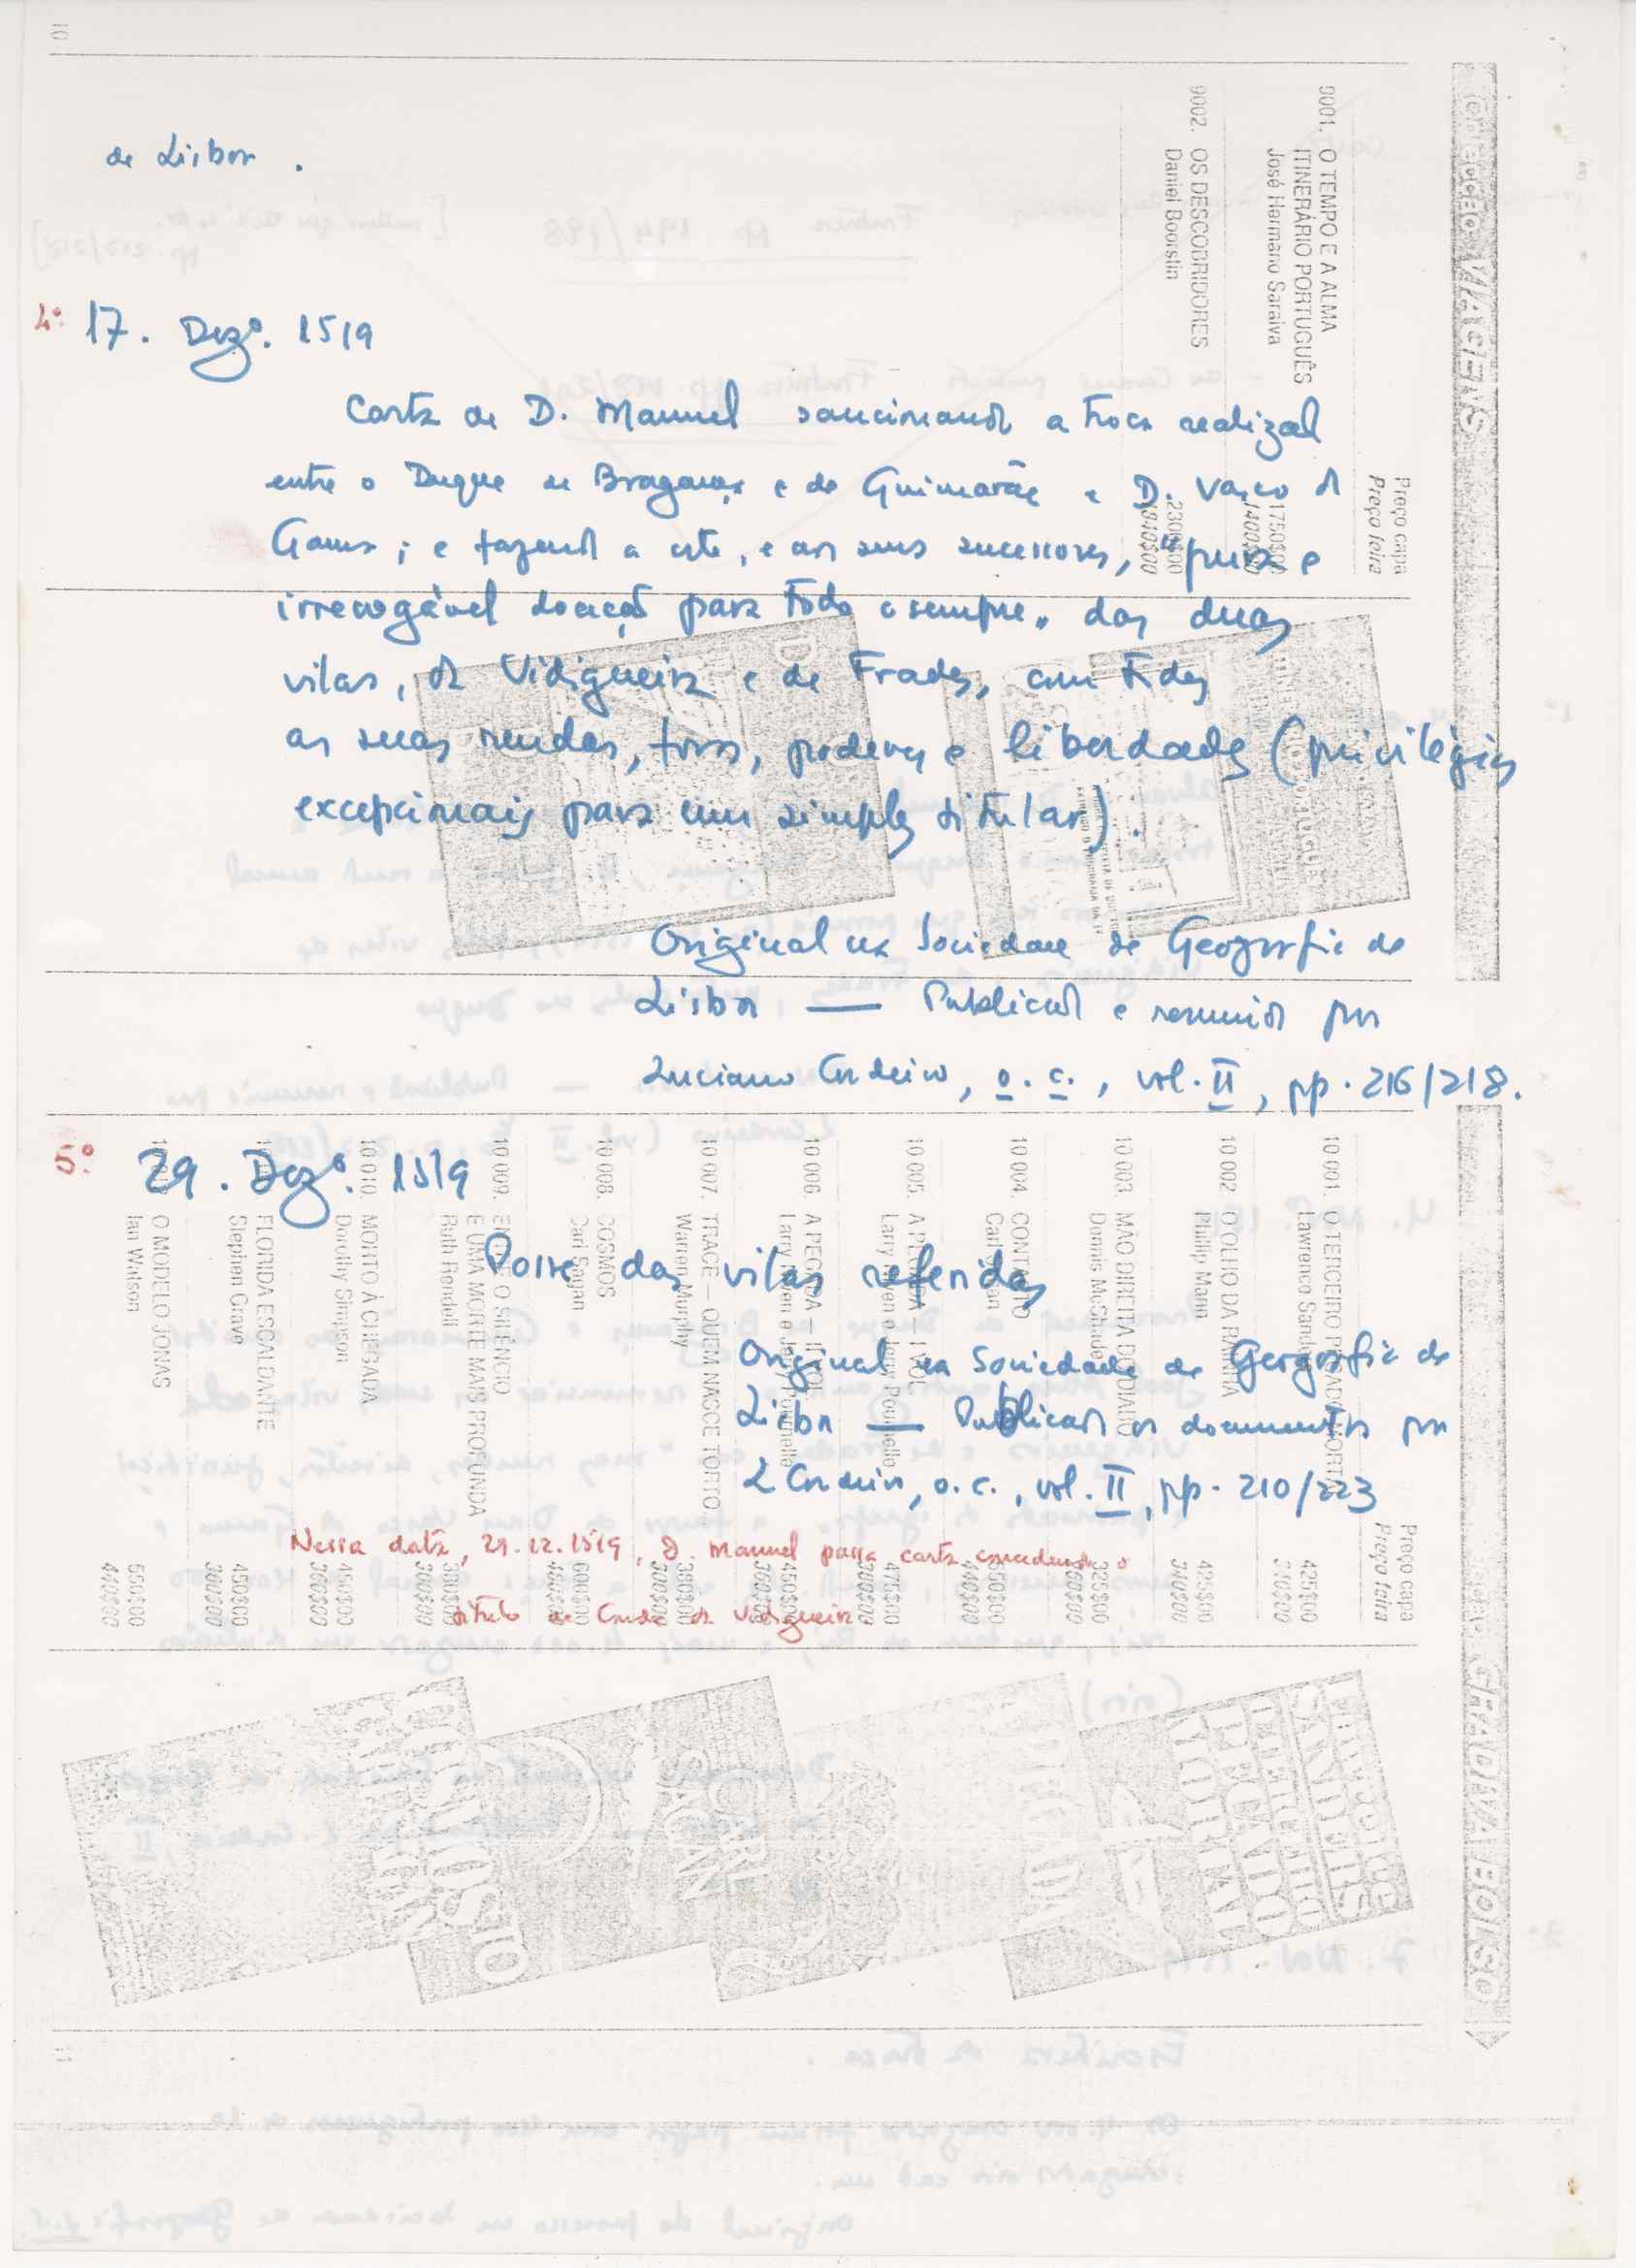 de Lisboa .
4º 17. Dezº. 1519
Carta de D. Manuel sancionando a troca realizada
entre o Duque de Bragança e de Guimarães e D. Vasco da
Gama ; e fazendo a este, e aos seus sucessores, "pura e
irrevogável doação para todo o sempre" das duas
vilas, da Vidigueira e de Frades, com todas
as suas rendas, foros, poderes e liberdades (privilégios
excepcionais para um simples titular).
Original na Sociedade de Geografia de
Lisboa — Publicado e resumido por
Luciano Cordeiro, o. c., vol. II, pp. 216/218.
5º 29. Dezº. 1519
Posse das vilas referidas
Original na Sociedade de Geografia de
Lisboa — Publicados os documentos por
L Cordeiro, o. c., vol. II, pp. 210/223
Nessa data, 29.12.1519, D. Manuel passa carta concedendo o
título de Conde da Vidigueira
10
VIAGENS
Preço capa
Preço feira
9001. O TEMPO E A ALMA
ITINERÁRIO PORTUGUÊS
José Hermano Saraiva
1750$00
1400$00
9002. OS DESCOBRIDORES
Daniel Boorstin
2300$00
1840$00
GRADIVA BOLSO
Preço capa
Preço feira
10 001. O TERCEIRO PECADO MORTAL
Lawrence Sanders
425$00
10 002. O OLHO DA RAINHA
Phillip Mann
425$00
340$00
10 003. MÃO DIREITA DO DIABO
Dennis McShade
325$00
10 004. CONTACTO
Carl Sagan
10 005.
Larry Niven e Jerry Pournelle
475$00
10 006.
Larry Niven e Jerry Pournelle
450$00
10 007. TRACE — QUEM NASCE TORTO
Warren Murphy
10 008. COSMOS
Carl Sagan
600$00
10 009. ENTRE O SILÊNCIO
E UMA MORTE MAIS PROFUNDA
Ruth Rendell
10 010. MORTO À CHEGADA
Dorothy Simpson
450$00
FLORIDA ESCALDANTE
Stephen Crave
450$00
O MODELO JONAS
Ian Watson
550$00
440$00
LAWRENCE
SANDERS
TERCEIRO
PECADO
MORTAL
CARL
SAGAN
11